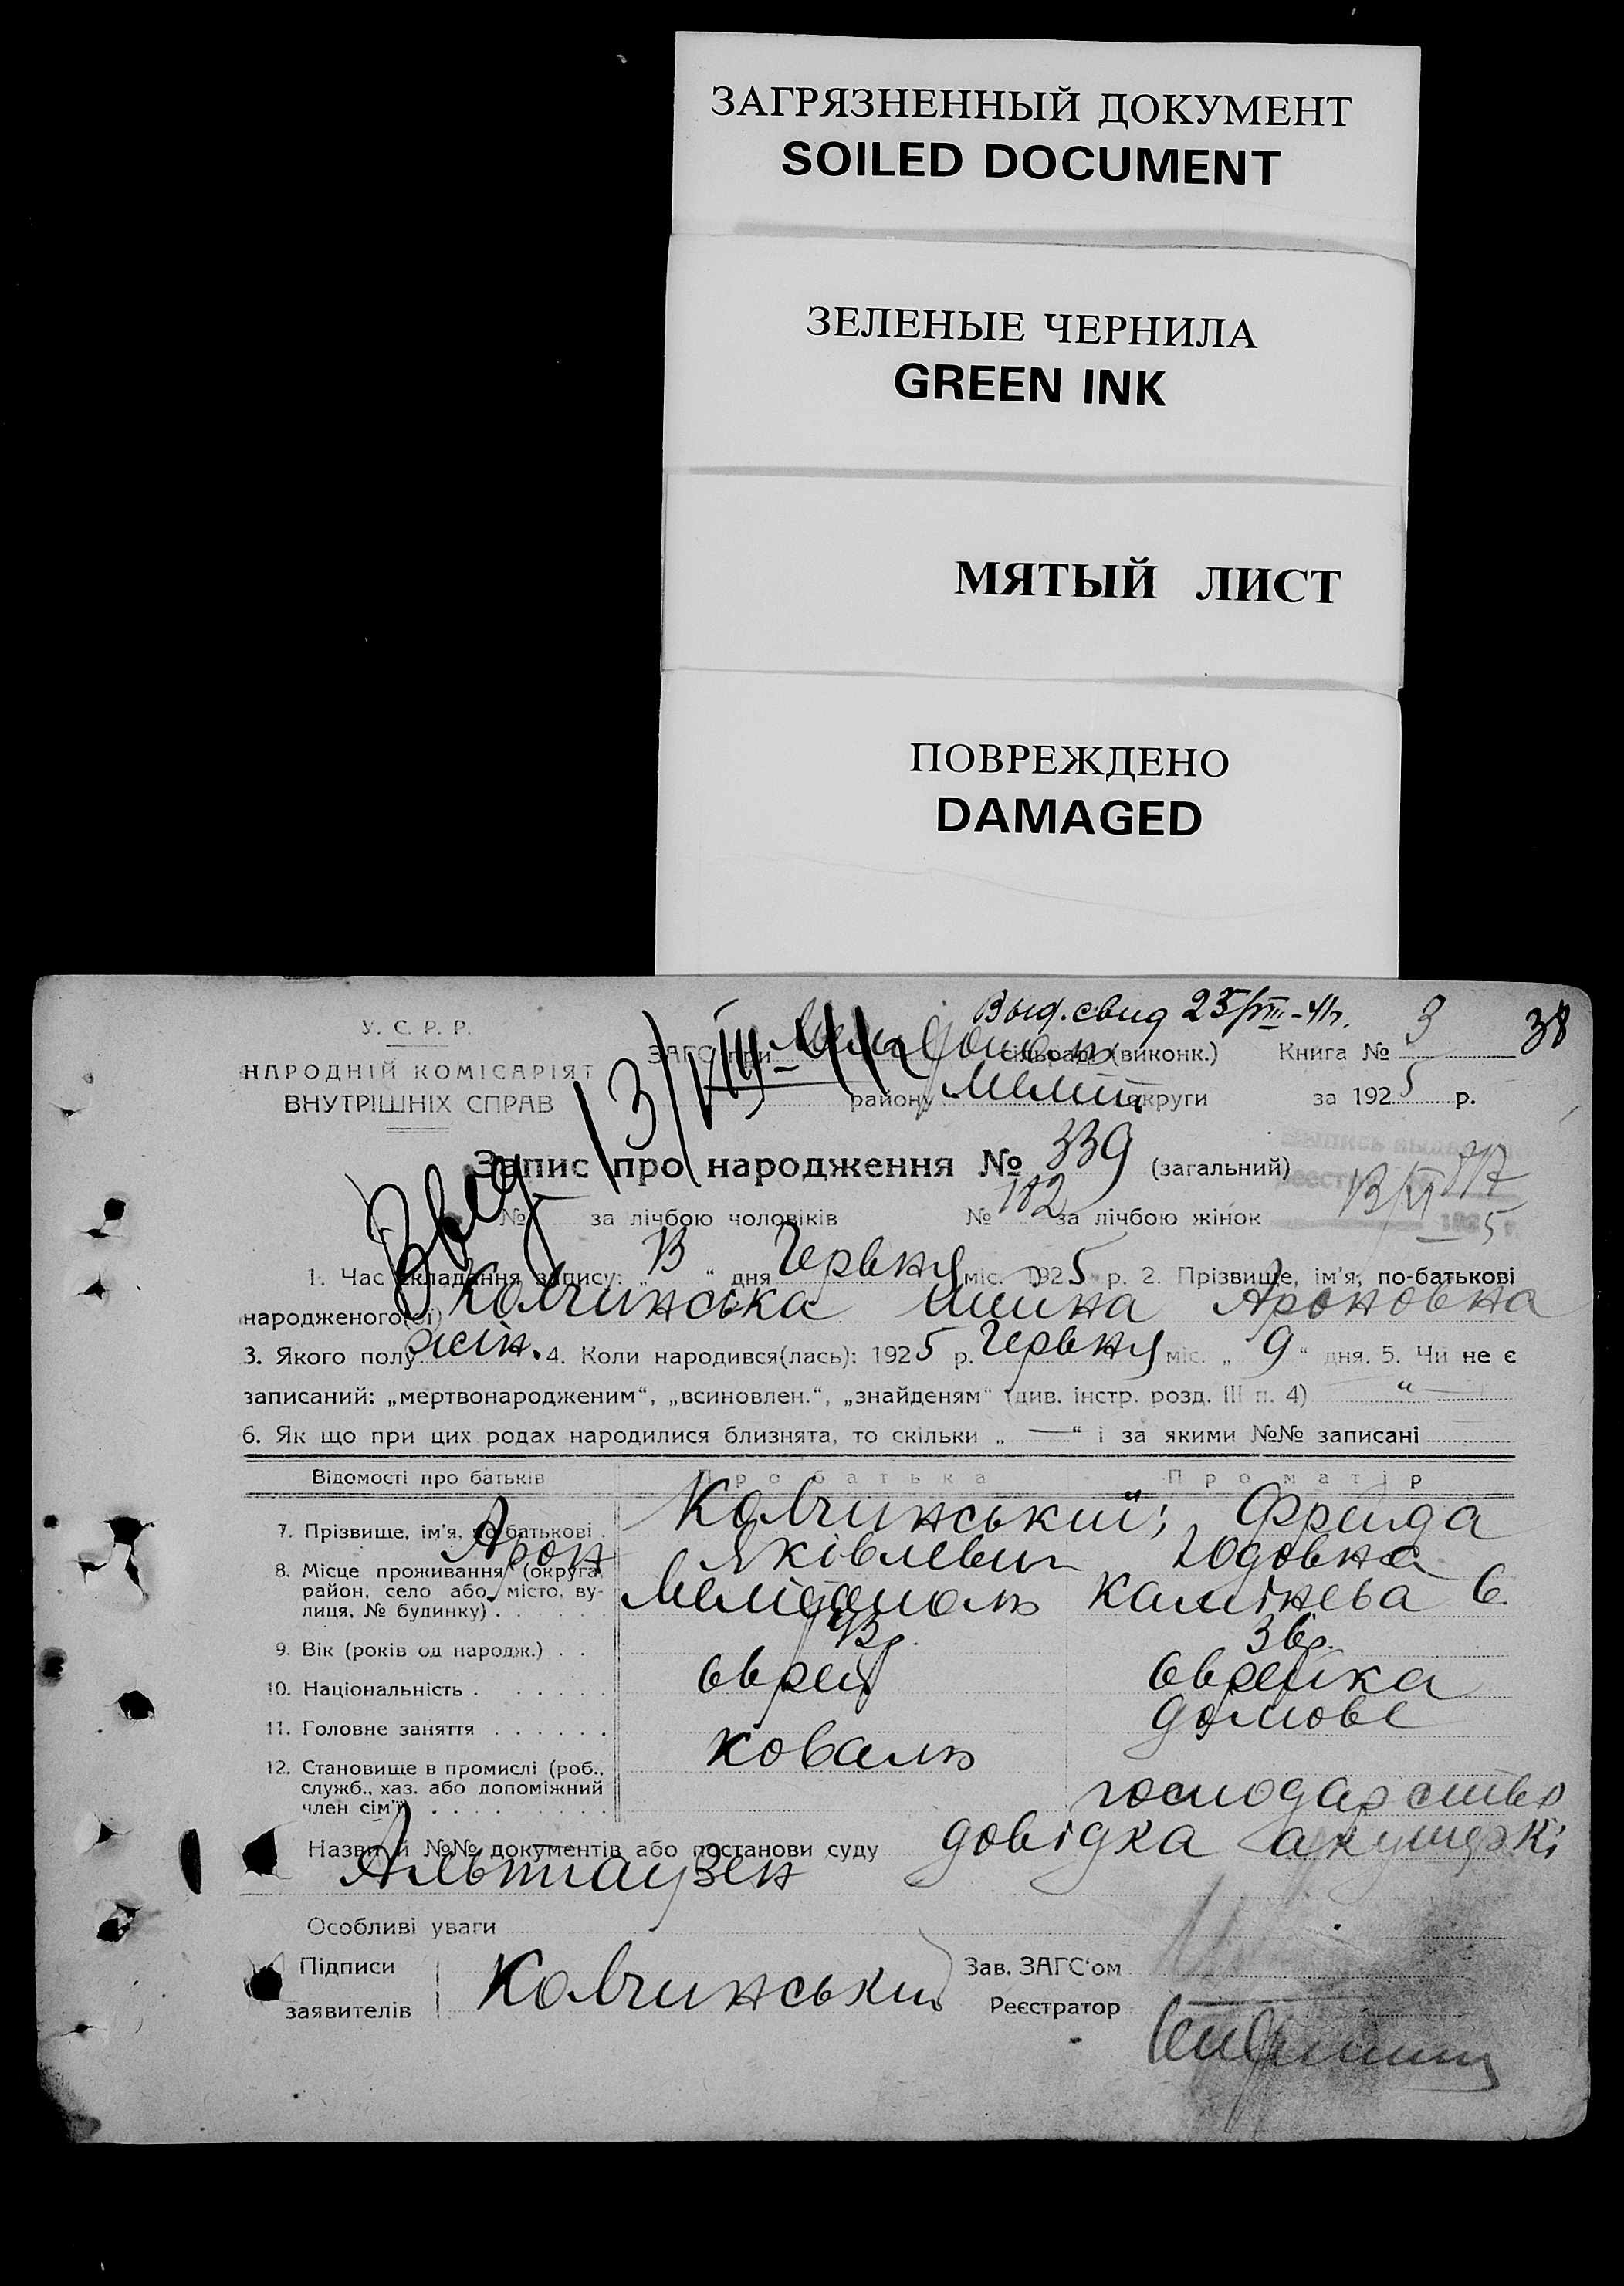 ЗАГРЯЗНЕННЫЙ ДОКУМЕНТ
SOILED DOCUMENT
ЗЕЛЕНЫЕ ЧЕРНИЛА
GREEN INK
МЯТЫЙ ЛИСТ
ПОВРЕЖДЕНО
DAMAGED
Выд. свид 25/VIII-41г.
38
У. С. Р. Р.
НАРОДНІЙ КОМІСАРІЯТ
ВНУТРІШНІХ СПРАВ
ЗАГС при сільраді (виконк.) Книга № 3
району Меліт округи за 1925 р.
Выд 13/VIII-41г
Запис про народження № 339 (загальний)
№ за лічбою чоловіків № 182 за лічбою жінок
13/VI 5
1. Час складання запису: „13“ дня Червня міс. 1925 р. 2. Прізвище, ім'я, по-батькові
народженого(ої) Колчинська Шина Ароновна
3. Якого полу жін. 4. Коли народився(лась): 1925 р. Червня міс. „9“ дня. 5. Чи не є
записаний: „мертвонародженим“, „всиновлен.“, „знайденям“ (див. інстр. розд. III п. 4) „
6. Як що при цих родах народилися близнята, то скільки „—“ і за якими №№ записані
Відомості про батьків Про батька Про матір
7. Прізвище, ім'я, по-батькові Колчинський; Фрейда
Арон Яківлевич Юдовна
8. Місце проживання (округа, район, село або місто, вулиця, № будинку) Мелітополь Камінева 6.
9. Вік (років од народж.) 43р. 36р.
10. Національність еврей еврейка
11. Головне заняття коваль домове
12. Становище в промислі (роб., служб., хаз. або допоміжний член сім'ї) господарство
Назви й №№ документів або постанови суду довідка акушеркі
Альтгаузен
Особливі уваги
Підписи заявителів Колчинський
Зав. ЗАГС'ом
Реєстратор